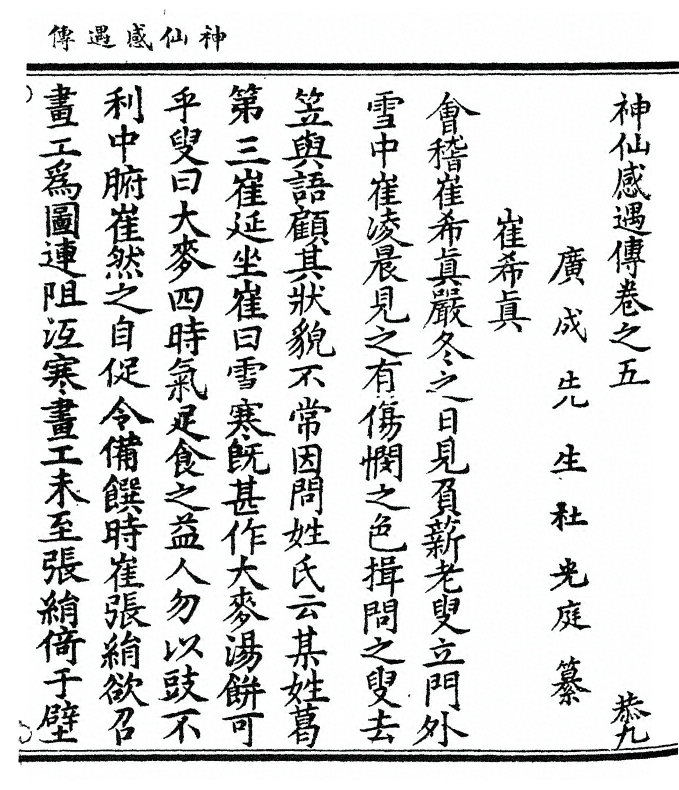 神仙感遇傳
神仙感遇傳卷之五
恭九
廣成先生杜光庭纂
崔希眞
會稽崔希眞嚴冬之日見負薪老叟立門外
雪中崔凌晨見之有傷憫之色揖問之叟去
笠與語顧其狀貌不常因問姓氏云某姓葛
第三崔延坐崔曰雪寒旣甚作大麥湯餅可
乎叟曰大麥四時氣足食之益人勿以豉不
利中腑崔然之自促令備饌時崔張絹欲召
畫工爲圖連阻沍寒畫工未至張絹倚于壁